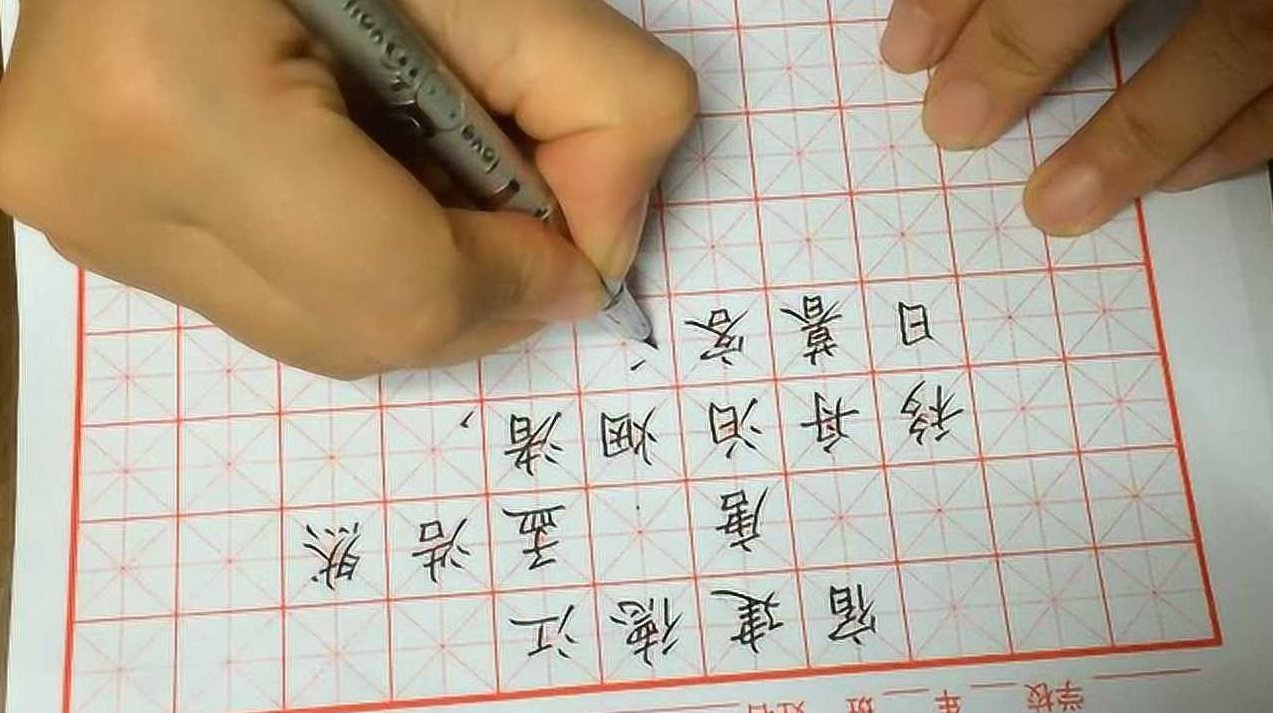 学校 年 班 姓名
宿建德江
唐·孟浩然
移舟泊烟渚，
日暮客